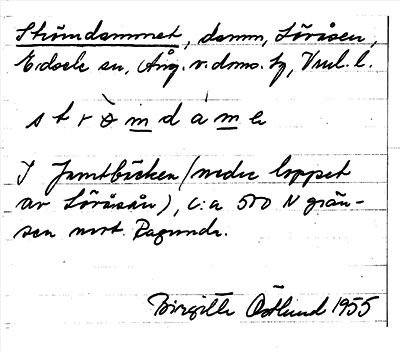 Strömdammet, damm, Söråsen,
Edsele sn, Ång. v. doms. tg, Vnl. l.
s t r ò m d à m e
I Jamtbäcken (nedre loppet
av Söråsån), c:a 500 N grän-
sen mot Ragunda.
Birgitta Östlund 1955